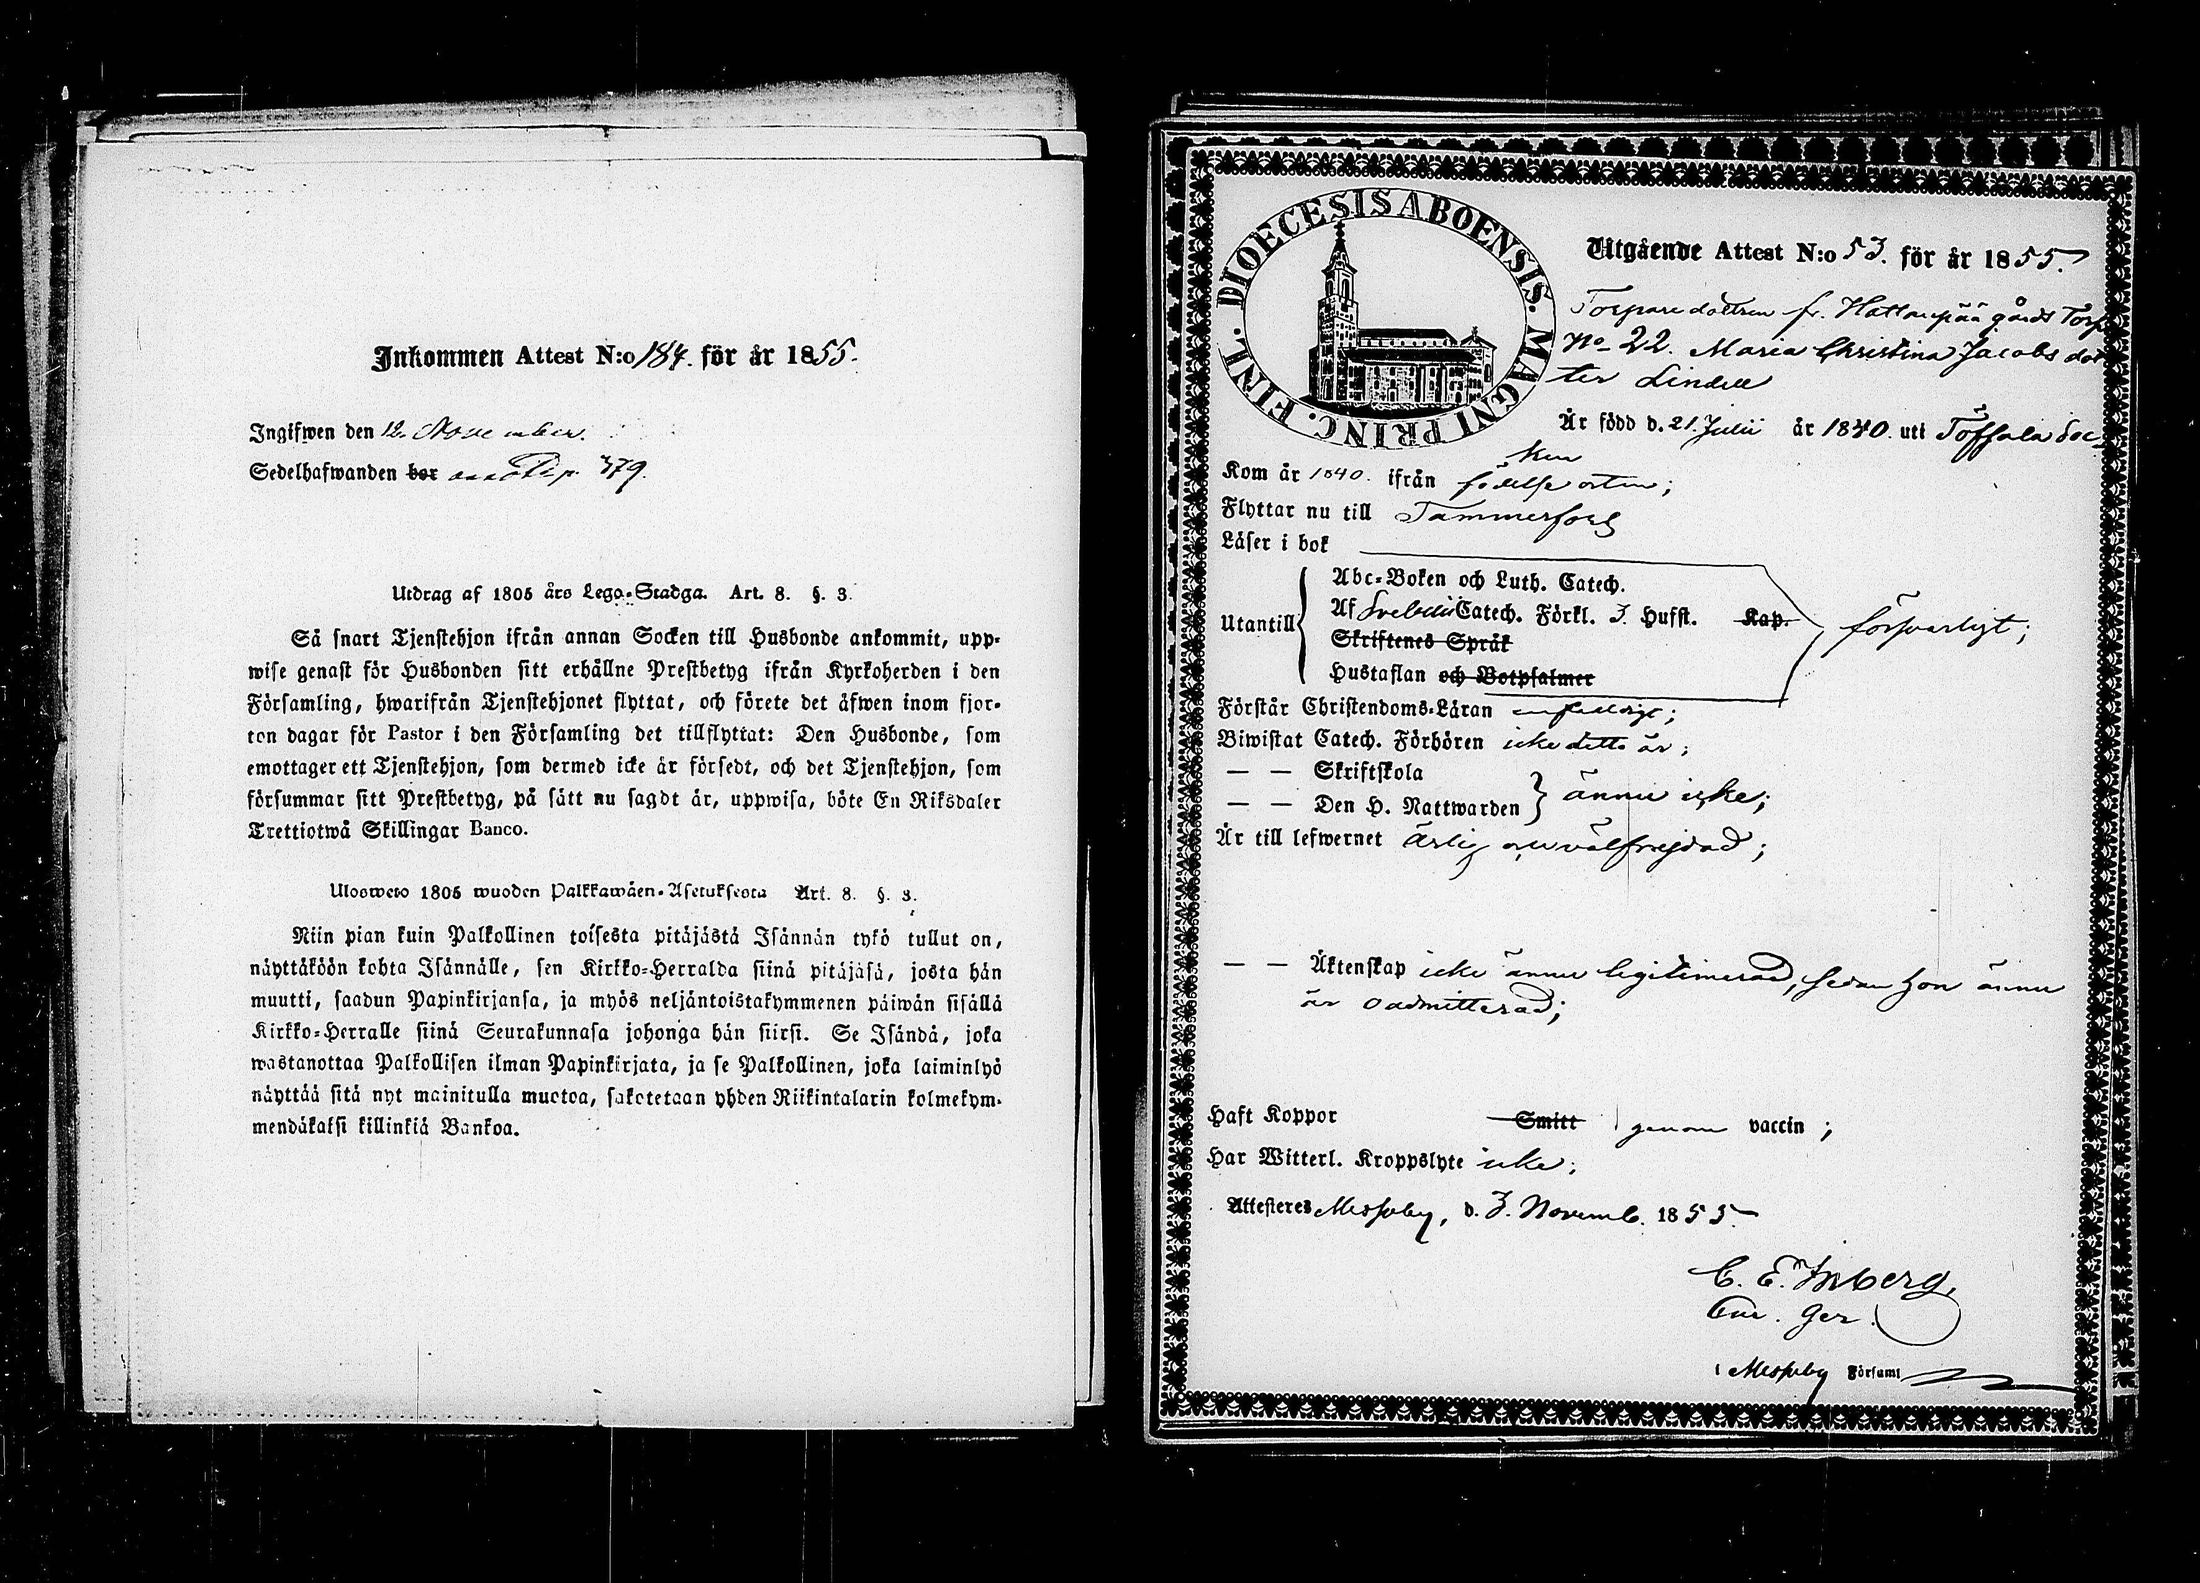 Inkommen Attest N:o 184. för år 1855.
Ingifwen den 12. November.
Sedelhafwanden bor pag. 379.
Utdrag af 1805 års Lego-Stadga. Art. 8. §. 3.
Så snart Tjenstehjon ifrån annan Socken till Husbonde ankommit, upp-
wise genast för Husbonden sitt erhållne Prestbetyg ifrån Kyrkoherden i den
Församling, hwarifrån Tjenstehjonet flyttat, och förete det äfwen inom fjor-
ton dagar för Pastor i den Församling det tillflyttat: Den Husbonde, som
emottager ett Tjenstehjon, som dermed icke är försedt, och det Tjenstehjon, som
försummar sitt Prestbetyg, på sätt nu sagdt är, uppwisa, böte En Riksdaler
Trettiotwå Skillingar Banco.
Ulosweto 1805 wuoden Palkkawäen-Asetuksesta Art. 8. §. 3.
Niin pian kuin Palkollinen toisesta pitäjästä Isännän tykö tullut on,
näyttäköön kohta Isännälle, sen Kirkko-Herralda siinä pitäjäsä, josta hän
muutti, saadun Papinkirjansa, ja myös neljäntoistakymmenen päiwän sisällä
Kirkko-Herralle siinä Seurakunnasa johonga hän siirsi. Se Isändä, joka
wastanottaa Palkollisen ilman Papinkirjata, ja se Palkollinen, joka laiminlyö
näyttää sitä nyt mainitulla muotoa, sakotetaan yhden Riikintalarin kolmekym-
mendäkaksi killinkiä Bankoa.
DIOECESIS ABOENSIS. MAGNI PRINC. FINL.
Utgående Attest N:o 53. för år 1855.
Torparedottren fr. Hattanpää gårds Torp
No 22. Maria Christina Jacobs dot
ter Lindell
Är född d. 21. Julii år 1840. uti Töffsala Soc
ken
Kom år 1840. ifrån födelse orten;
Flyttar nu till Tammerfors
Läser i bok
Abc-Boken och Luth. Catech.
Utantill Af Svebilii Catech. Förkl. 3. Hufst. Kap. försvarligt;
Skriftenes Språk
Hustaflan och Botpsalmer
Förstår Christendoms-Läran enfaldigt;
Biwistat Catech. Förhören icke detta år;
— — Skriftskola
— — Den H. Nattwarden ännu icke;
Är till lefwernet ärlig och välfrejdad;
— — Äktenskap icke ännu legitimerad, sedan hon ännu
är oadmitterad;
Haft Koppor Smitt genom vaccin;
Har Witterl. Kroppslyte icke;
Attesteres Messuby, d. 3. Novemb. 1855.
C. E. Inberg,
Cur. Ger.
i Messuby Församl